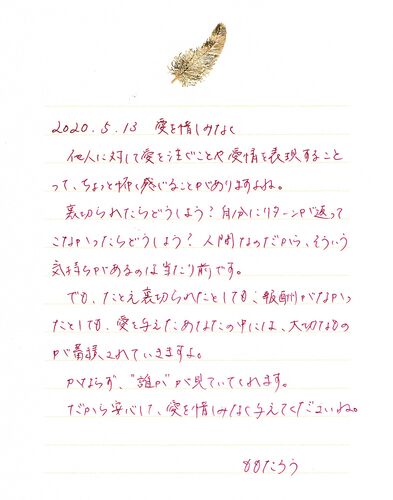 2020.5.13 愛を惜しみなく
他人に対して愛を注ぐことや愛情を表現すること
って、ちょっと怖く感じることがありますよね。
裏切られたらどうしよう？自分にリターンが返って
こなかったらどうしよう？人間なのだから、そういう
気持ちがあるのは当たり前です。
でも、たとえ裏切られたとしても、報酬がなかっ
たとしても、愛を与えたあなたの中には、大切なもの
が蓄積されていきますよ。
かならず、"誰か"が見ていてくれます。
だから安心して、愛を惜しみなく与えてくださいね。
ももたろう